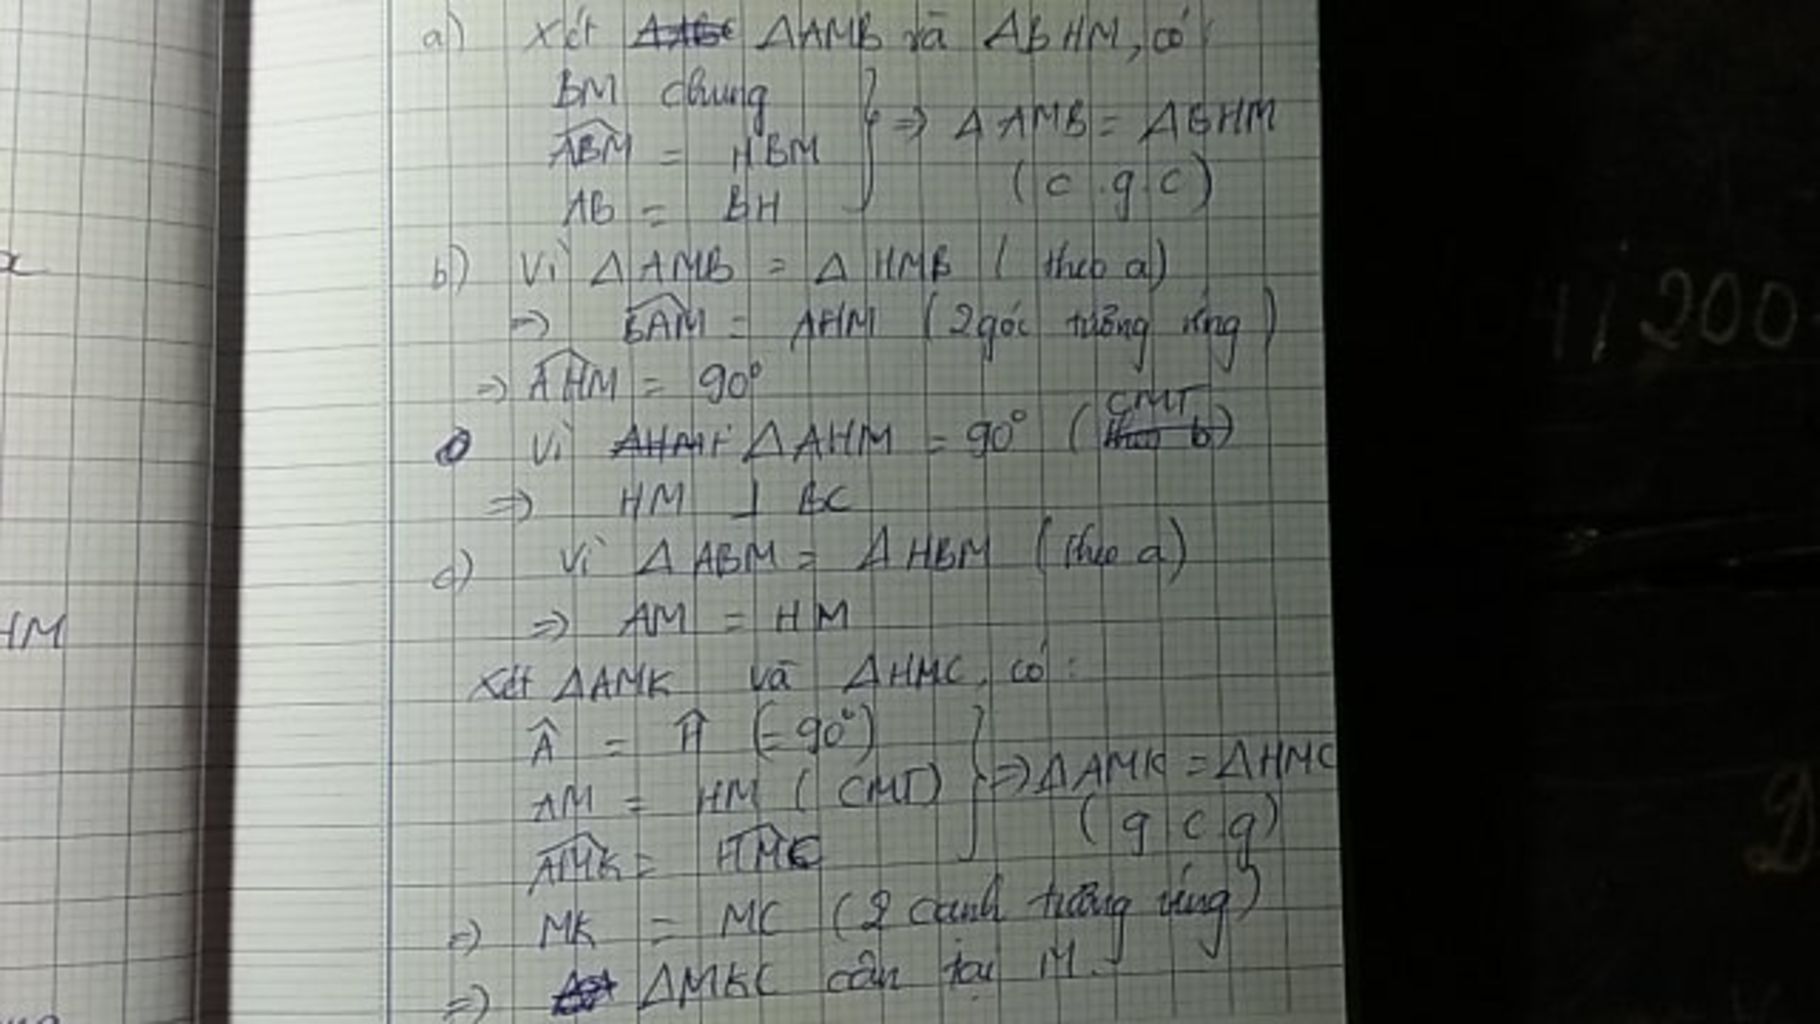 a) Xét ΔAMB và ΔBHM, có:
BM chung
ABM = HBM
AB = BH
=> ΔAMB = ΔBHM
(c.g.c)
b) Vì ΔAMB = ΔHMB (theo a)
=> BAM = AHM (2 góc tương ứng)
=> AHM = 90°
Vì ΔAHM = 90° (CMT)
=> HM ⊥ BC
c) Vì ΔABM = ΔHBM (theo a)
=> AM = HM
Xét ΔAMK và ΔHMC, có:
A = H (=90°)
AM = HM (CMT)
AMK = HMC
=> ΔAMK = ΔHMC
(g c g)
=> MK = MC (2 cạnh tương ứng)
=> ΔMKC cân tại M.
HM
200